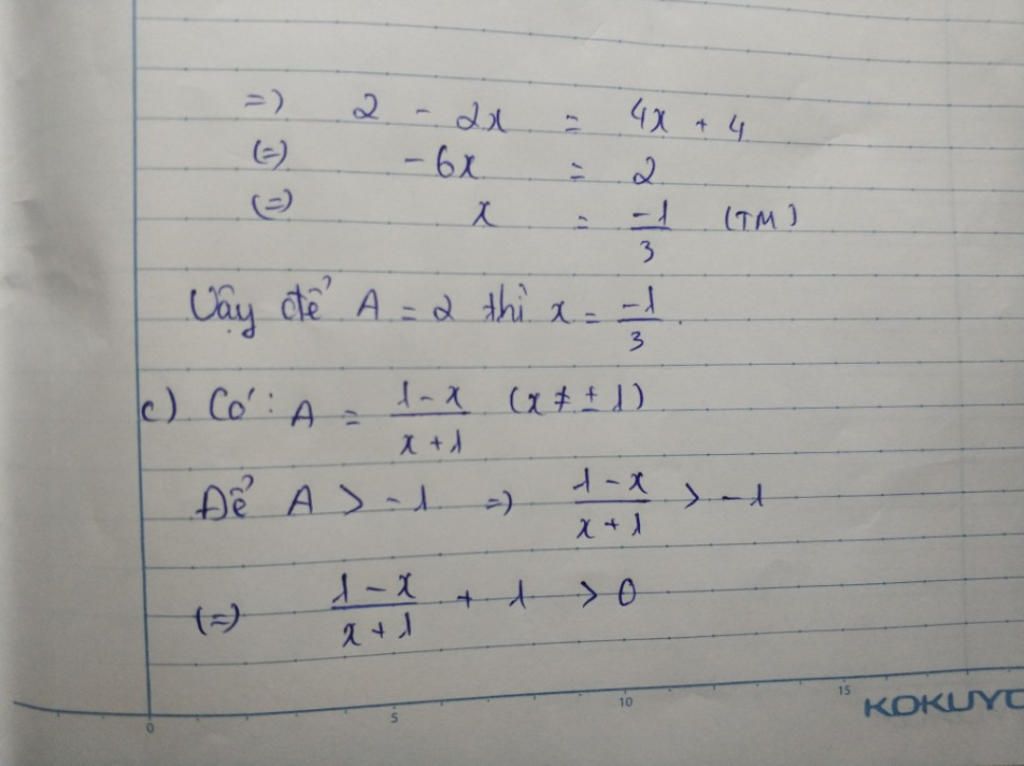 => 2 - 2x = 4x + 4
(=) -6x = 2
(=) x = -1/3 (TM)
Vậy để A = 2 thì x = -1/3.
c) Có: A = 1-x/x+1 (x ≠ ± 1)
Để A > -1 => 1-x/x+1 > -1
(=) 1-x/x+1 + 1 > 0
0 5 10 15 KOKUYO